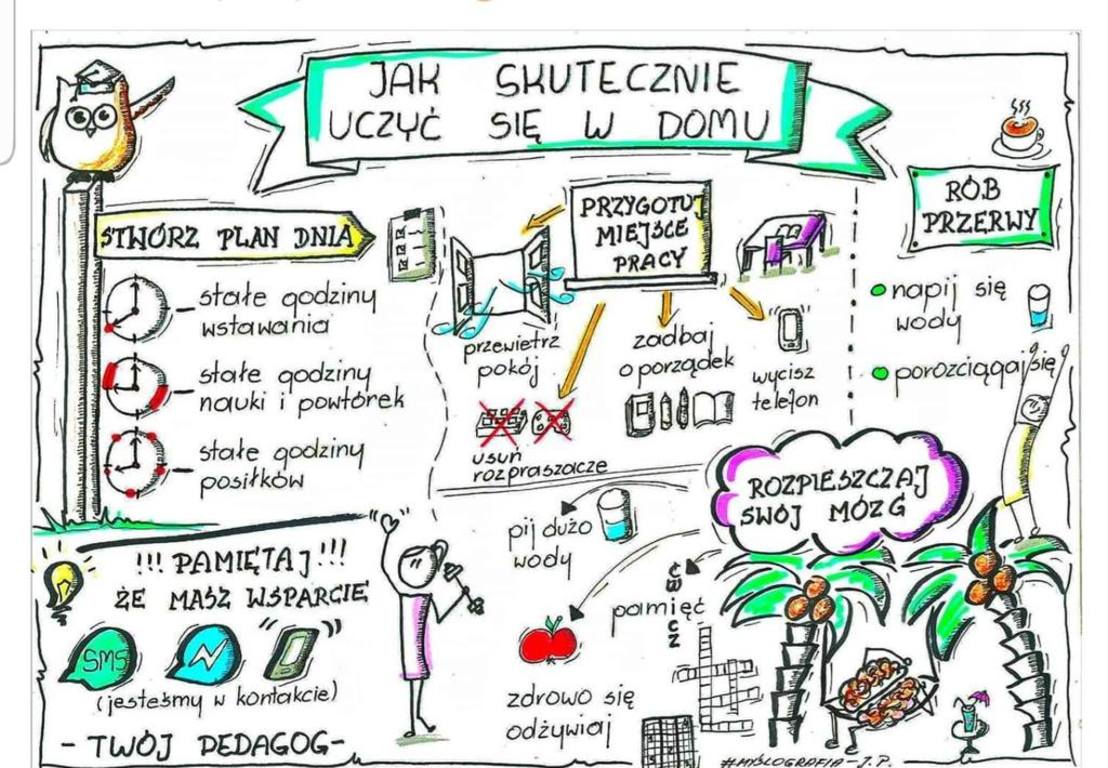 JAK SKUTECZNIE
UCZYĆ SIĘ W DOMU
STWÓRZ PLAN DNIA
stałe godziny
wstawania
stałe godziny
nauki i powtórek
stałe godziny
posiłków
PRZYGOTUJ
MIEJSCE
PRACY
przewietrz
pokój
usuń
rozpraszacze
zadbaj
o porządek
wycisz
telefon
RÓB
PRZERWY
napij się
wody
porozciągaj się
ROZPIESZCZAJ
SWÓJ MÓZG
pij dużo
wody
zdrowo się
odżywiaj
ćwicz
pamięć
!!! PAMIĘTAJ !!!
ŻE MASZ WSPARCIE
SMS
(jesteśmy w kontakcie)
- TWÓJ PEDAGOG-
#MYŚLOGRAFIA-J.P.